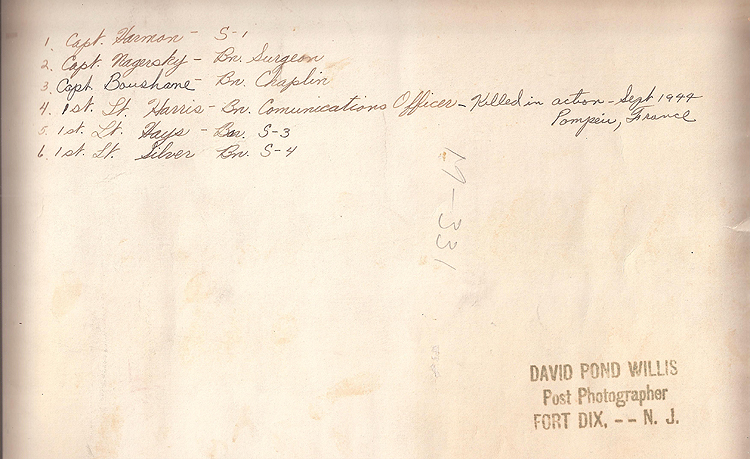 1. Capt. Harmon - S-1
2. Capt. Nagersky - Bn. Surgeon
3. Capt Boushane - Bn. Chaplin
4. 1st. Lt. Harris - Bn. Comunications Officer - Killed in action - Sept 1944
Pompeiu, France
5. 1st. Lt. Hays - Bn. S-3
6. 1st. Lt. Silver Bn. S-4
DAVID POND WILLIS
Post Photographer
FORT DIX, -- N. J.